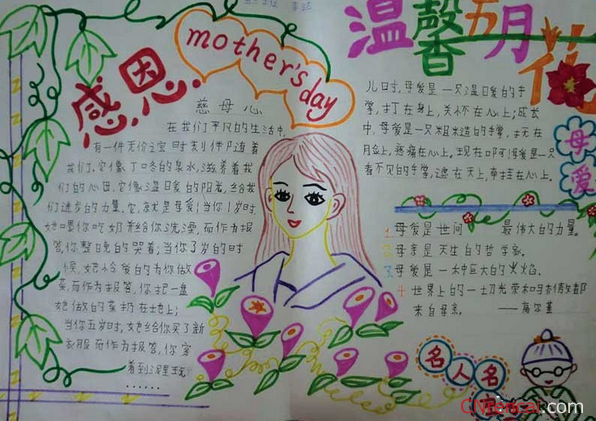 感恩
mother's day
慈母心
在我们平凡的生活中,
有一件无价之宝时刻伴随着
我们,它像丁咚的泉水,滋养着我
们的心田,它像温暖的阳光,给我
们进步的力量。它,就是母爱!当你1岁时,
她喂你吃奶并给你洗澡,而作为报
答,你整日的哭着;当你3岁的时
候,她怜爱的为你做
菜,而作为报答,你把一盘
她做的菜扔在地上;
当你五岁时,她给你买了新
衣服,而作为报答,你穿
着到泥里玩
......
温馨五月花
儿时,母爱是一只温暖的手
掌,打在身上,关怀在心上;成长
中,母爱是一只粗糙的手掌,抚在
上,疼痛在心上,现在啊,母爱是一只
看不见的手掌,远在天上,牵挂在心上。
母爱
1 母爱是世间 最伟大的力量。
2 母亲是天生的哲学家。
3 母爱是一种巨大的火焰。
世界上的一切光荣和骄傲都
来自母亲。 ——高尔基
名人名
CNPencel.com